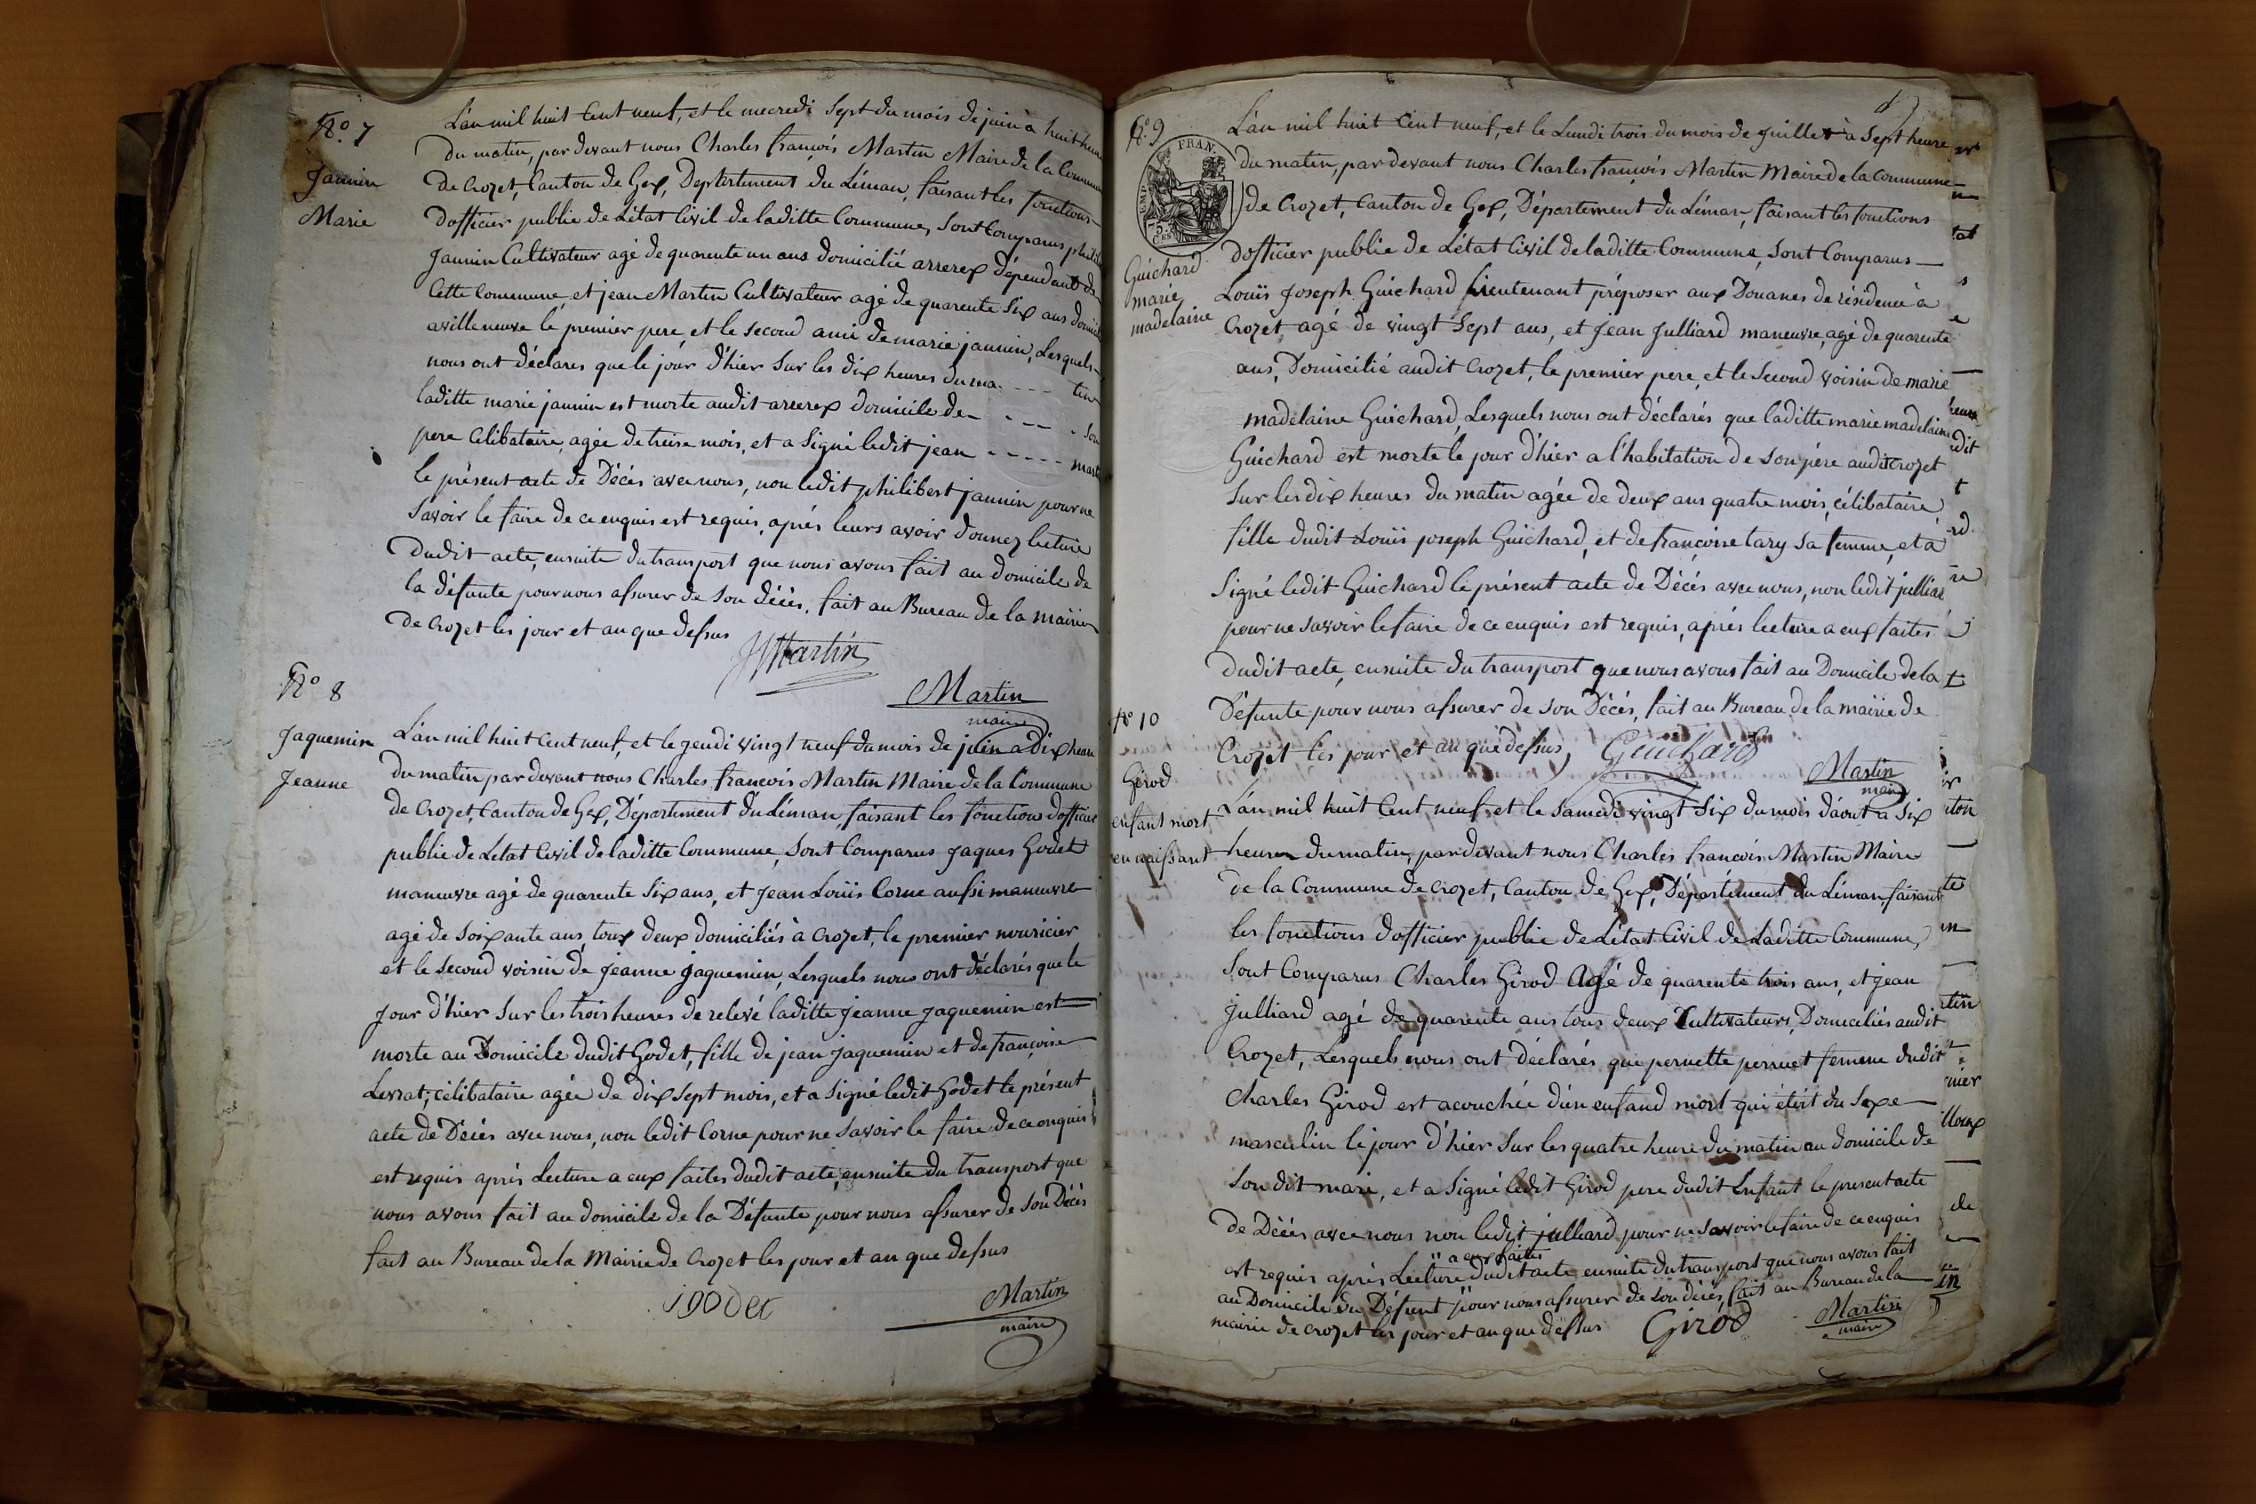 N.o 7
Jannin
Marie
L'an mil huit Cent neuf, et le mecredi Sept du mois de juin à huit heure
du matin, par devant nous Charles françois Martin Maire de la Commune
de Crozet, Canton de Gex, Departement du Léman, faisant les fonctions
d'officier public de L'état Civil de laditte Commune, Sont Comparus philib
Jannin Cultivateur agé de quarente un ans domicilié arrerex dépendant de
Cette Commune, et jean Martin Cultivateur agé de quarente Six ans domici
avilleneuve le premier pere, et le Second ami de marie jannin, Lesquels
nous ont déclares que le jour d'hier Sur les dix heures du ma - - - tin
laditte marie jannin est morte audit arrerex domicile de - - - - Son
pere Célibataire, agée de treise mois, et a Signé ledit jean - - - - - mart
le présent acte de Décés avec nous, non ledit philibert jannin pour ne
Savoir le faire de ce enquis est requis, aprés leurs avoir donnez lecture
dudit acte, ensuite du transport que nous avons fait au domicile de
la défunte pour nous assurer de Son décès, fait au Bureau de la mairie
de Crozet les jour et an que dessus
JMartin
Martin
maire
N.o 8
Jaquemin
Jeanne
L'an mil huit Cent neuf, et le jeudi vingt neuf du mois de juin a dix heure
du matin par devant nous Charles francois Martin Maire de la Commune
de Crozet, Canton de Gex, Département du Léman, faisant les fonctions d'officier
public de L'état Civil de laditte Commune, Sont Comparus Jaques Godet
manœuvre agé de quarente Six ans, et Jean Louïs Corne aussi maneuvre
agé de Soixante ans, tous deux domiciliés à Crozet, le premier nouricier
et le Second voisin de Jeanne Jaquemin, Lesquels nous ont déclarés que le
Jour d'hier Sur les trois heures de relevé laditte Jeanne Jaquemin est
morte au Domicile dudit Godet, fille de jean Jaquemin et de françoise
Levrat, célibataire agée de dix Sept mois, et a Signé ledit Godet le présent
acte de Décés avec nous, non ledit Corne pour ne Savoir le faire de ce enquis
est requis aprés Lecture a eux faites dudit acte, ensuite du transport que
nous avons fait au domicile de la Défunte pour nous assurer de Son Décès
fait au Bureau de la Mairie de Crozet les jour et an que dessus
Martin
maire
N.o 9
FRAN.
EMP.
75.
Guichard
marie
madelaine
L'an mil huit Cent neuf, et le Lundi trois du mois de Juillet à Sept heure
du matin, par devant nous Charles françois Martin Maire de la Commune
de Crozet, Canton de Gex, Département du Léman, faisant les fonctions
d'officier public de L'état Civil de laditte Commune, Sont Comparus
Louïs Joseph Guichard Lieutenant préposer aux Douanes de résidence à
Crozet, agé de vingt Sept ans, et Jean Julliard maneuvre, agé de quarente
ans, Domicilié audit Crozet, le premier pere, et le Second voisin de marie
madelaine Guichard, Lesquels nous ont déclarés que laditte marie madelaine
Guichard est morte le jour d'hier a l'habitation de Son pére audit Crozet
Sur les dix heures du matin agée de deux ans quatre mois, célibataire
fille dudit Louïs joseph Guichard, et de françoise tary Sa femme, et a
Signé ledit Guichard le présent acte de Décés avec nous, non ledit julliar
pour ne Savoir le faire de ce enquis est requis, aprés lecture a eux faites
dudit acte, ensuite du transport que nous avons fait au Domicile de la
Défunte pour nous assurer de Son Décés, fait au Bureau de la mairie de
Crozet les jour et an que dessus
Guichard
Martin
maire
N.o 10
Girod
enfant mort
en naissant
L'an mil huit Cent neuf et le Samedi vingt Six du mois d'aout a Six
heures du matin, par devant nous Charles francois Martin Maire
de la Commune de Crozet, Canton de Gex, Département du Léman, faisant
les fonctions d'officier public de L'état Civil de Laditte Commune,
Sont Comparus Charles Girod Agé de quarente trois ans, et jean
Julliard agé de quarente ans tous deux Cultivateurs, Domiciliés audit
Crozet, Lesquels nous ont déclarés que pernette perruet femme dudit
Charles Girod est acouchée d'un enfand mort qui étoit du Sexe
masculin le jour d'hier Sur les quatre heure du matin au domicile de
Son dit mari, et a Signé ledit Girod pere dudit Enfant le present acte
de Décés avec nous non ledit julliard pour ne Savoir le faire de ce enquis
a eux faites
est requis aprés Lecture dudit acte ensuite du transport que nous avons fait
au Domicile du Défunt pour nous assurer de Son décés, fait au Bureau de la
mairie de Crozet les jour et an que dessus
Girod
Martin
maire